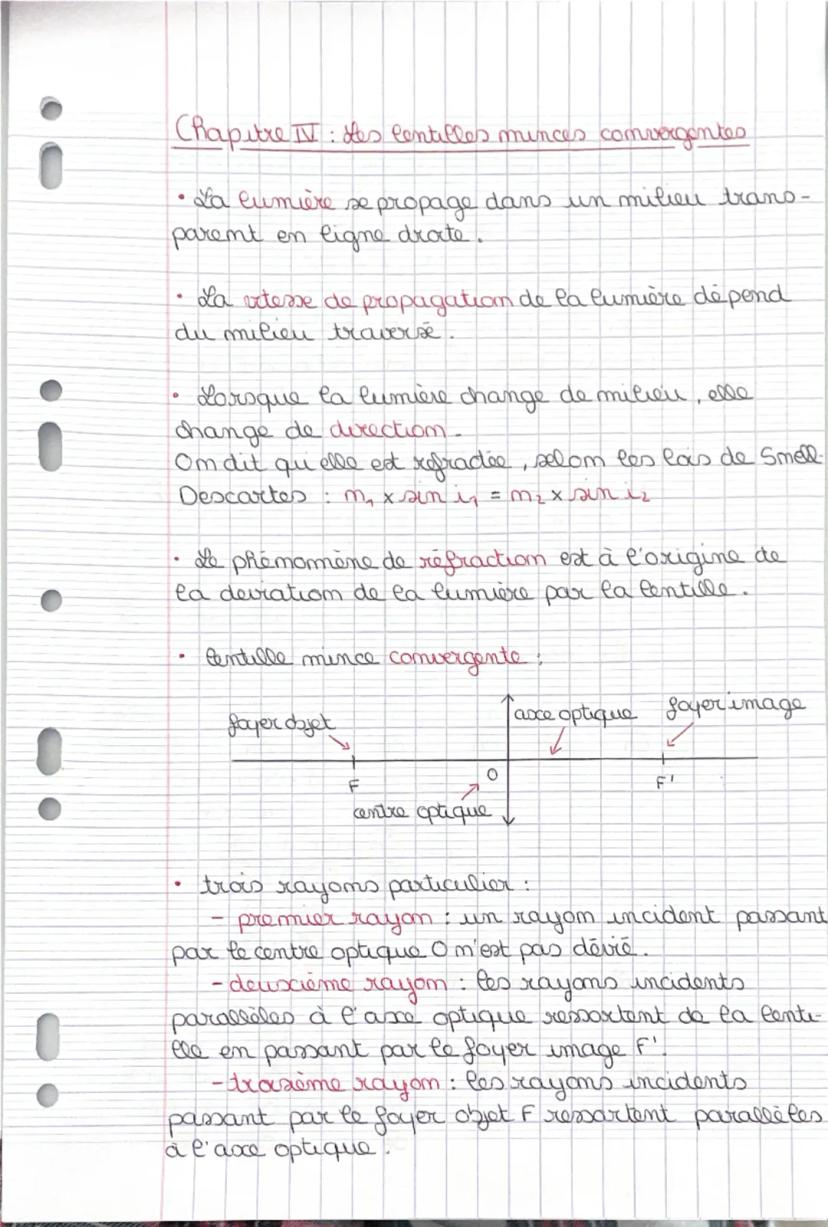 Chapitre IV : Les lentilles minces convergentes
• La lumière se propage dans un milieu trans-
parent en ligne droite.
• La vitesse de propagation de la lumière dépend
du milieu traversé.
• Lorsque la lumière change de milieu, elle
change de direction.
On dit qu'elle est réfractée, selon les lois de Snell-
Descartes : n₁ x sin i₁ = n₂ x sin i₂
• Le phénomène de réfraction est à l'origine de
la deviation de la lumière par la lentille.
• lentille mince convergente :
foyer objet
axe optique
foyer image
F
O
F'
centre optique
• trois rayons particulier :
- premier rayon : un rayon incident passant
par le centre optique O n'est pas dévié.
- deuxième rayon : les rayons incidents
parallèles à l'axe optique ressortent de la lenti-
lle en passant par le foyer image F'.
- troisième rayon : les rayons incidents
passant par le foyer objet F ressortent parallèles
à l'axe optique.